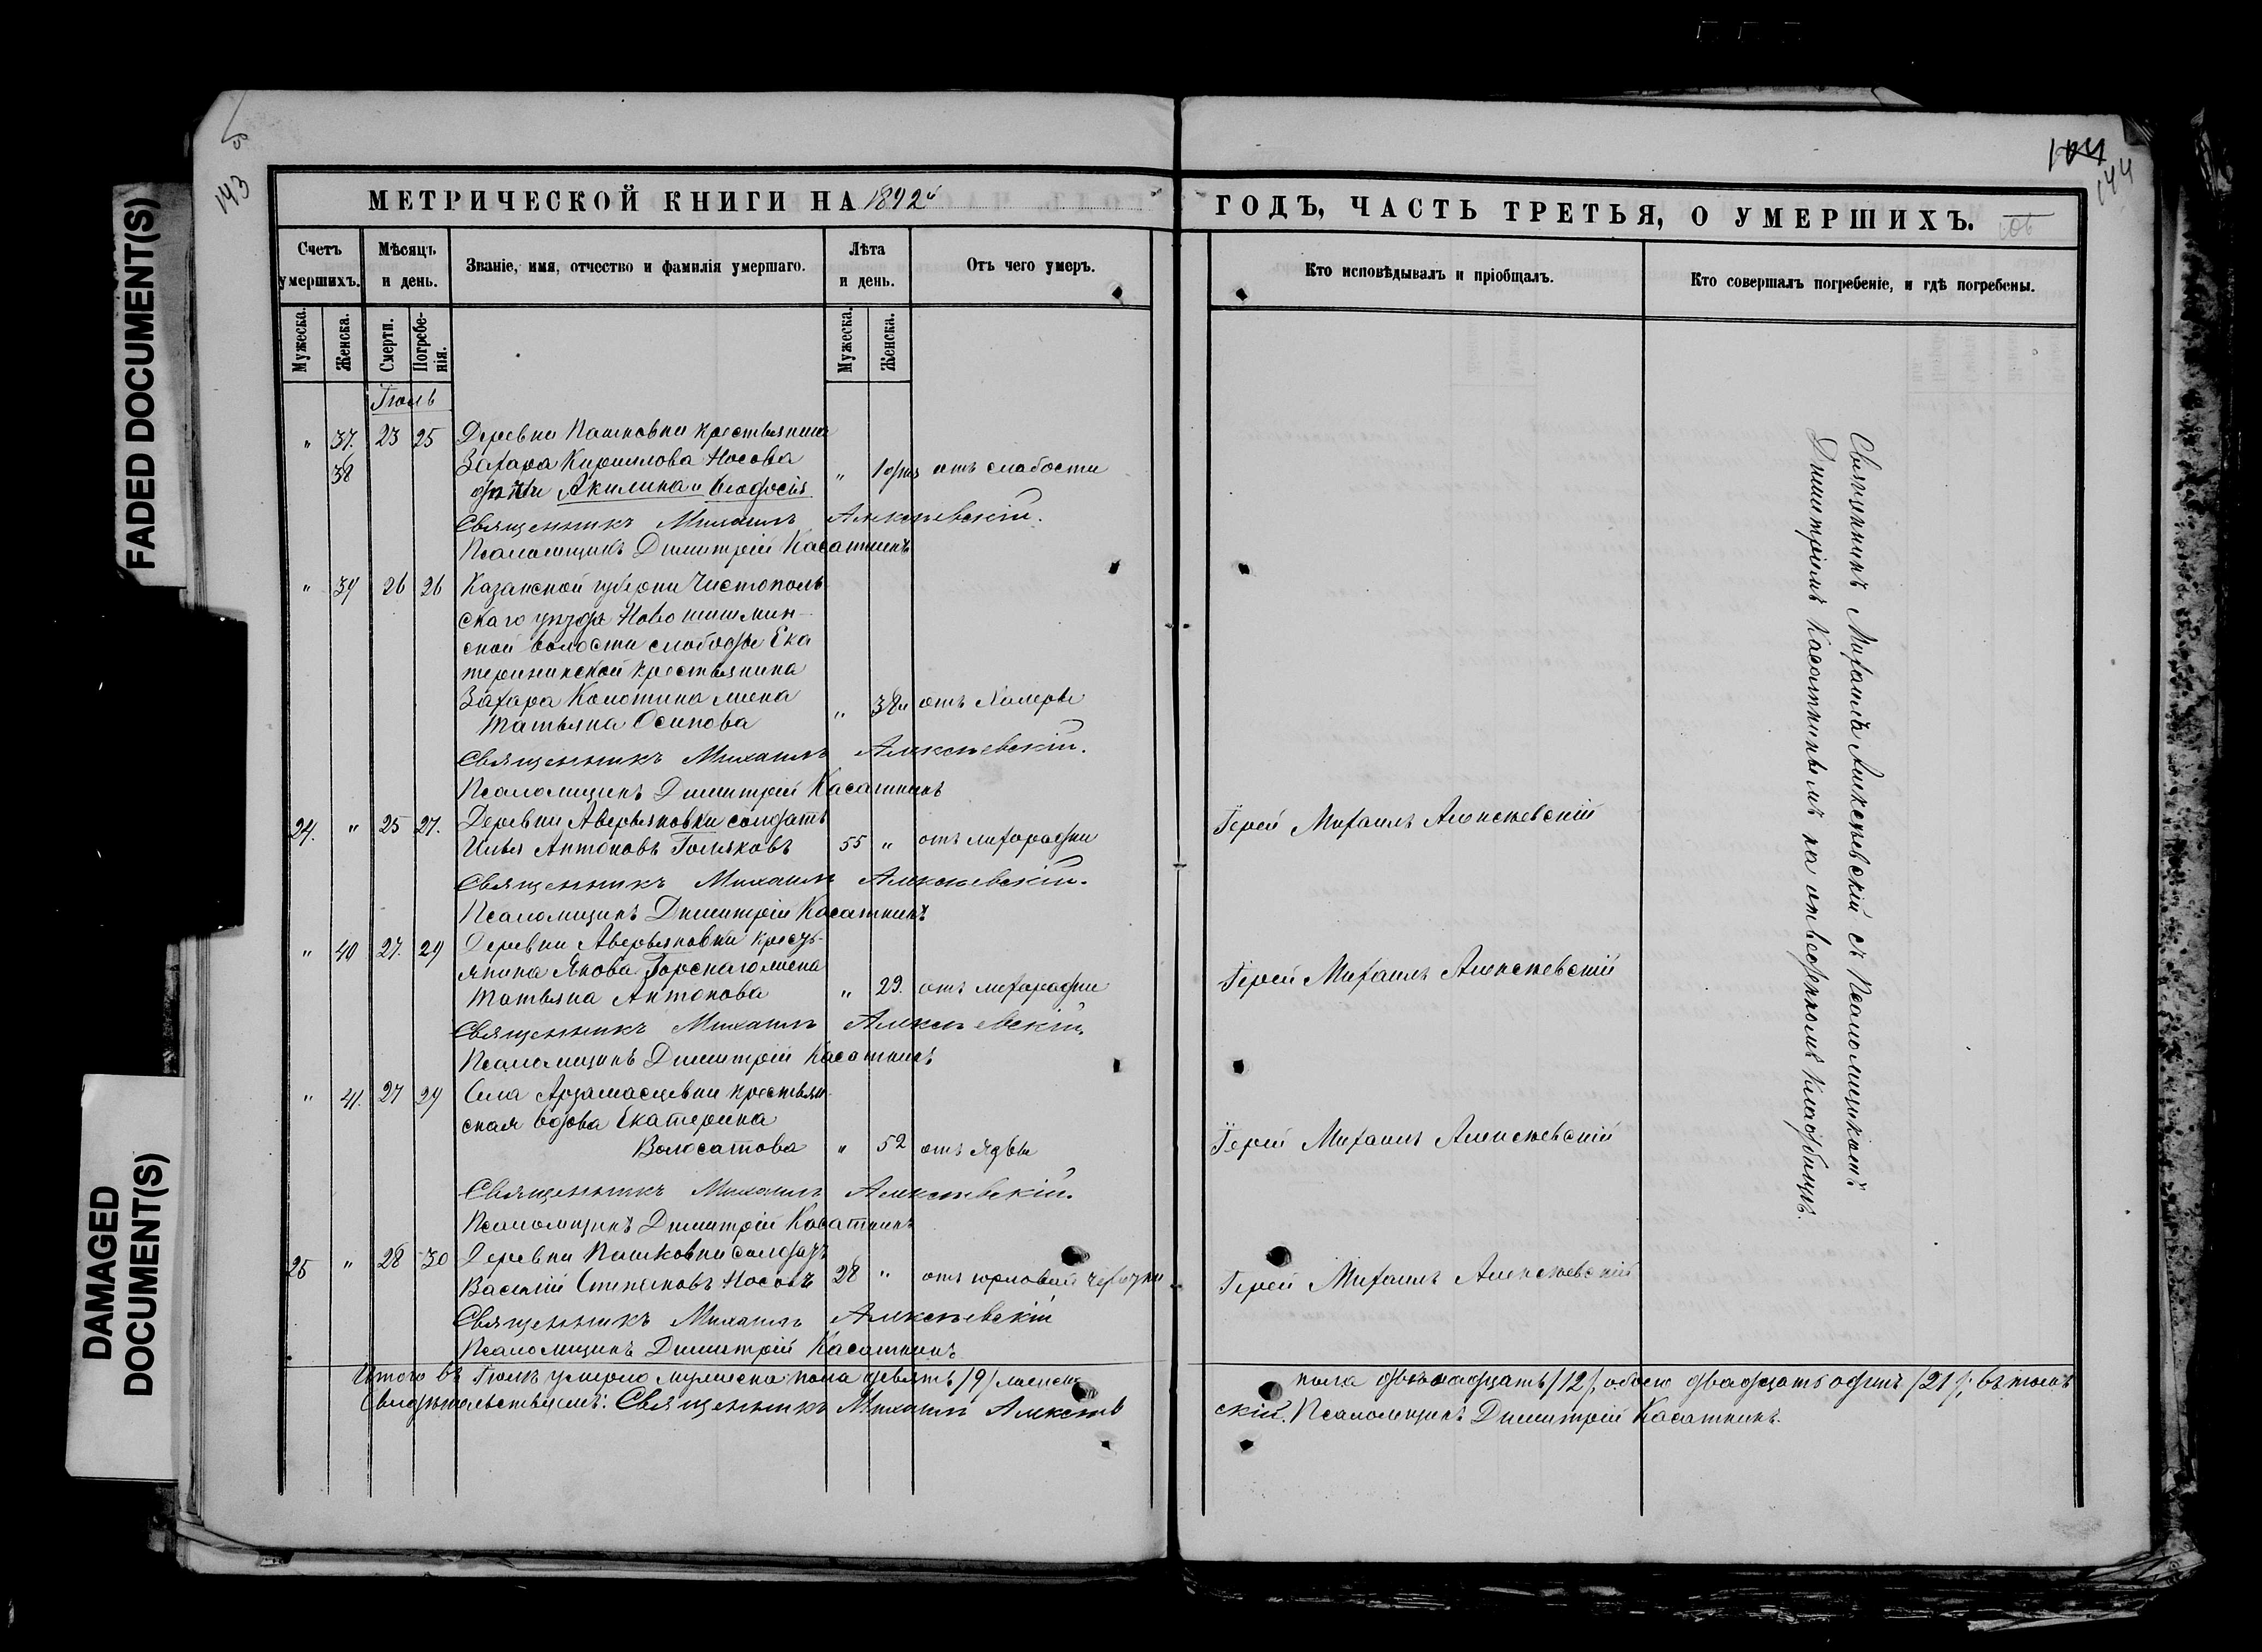 FADED DOCUMENT(S)
DAMAGED
DOCUMENT(S)
143
144
МЕТРИЧЕСКОЙ КНИГИ НА 1892й
ГОДЪ, ЧАСТЬ ТРЕТЬЯ, О УМЕРШИХЪ.
Счетъ умершихъ.
Мѣсяцъ и день.
Званіе, имя, отчество и фамилія умершаго.
Лѣта и день.
Отъ чего умеръ.
Кто исповѣдывалъ и пріобщалъ.
Кто совершалъ погребеніе, и гдѣ погребены.
Мужеска. Женска. Смерти. Погребенія. Мужеска. Женска.
Іюль
" 37. 23 25 Деревни Пашковки крестьянина
38 Захара Кириллова Носова " 1 дня отъ слабости
дѣти Акилина и Ѳеодосія
Священникъ Михаилъ Алексѣевскій.
Псаломщикъ Димитрій Касаткинъ
" 39 26 26 Казанской губерни Чистополь
скаго уѣзда Новошишмин-
ской волости слободы Ека
терининской крестьянина
Захара Колотина жена
Татьяна Осипова " 38 отъ Холеры
Священникъ Михаилъ Алексѣевскій.
Псаломщикъ Димитрій Касаткинъ
24. " 25 27. Деревни Аверьяновки солдатъ
Илья Антоновъ Голяковъ 55 " отъ лихорадки Іерей Михаилъ Алексѣевскій
Священникъ Михаилъ Алексѣевскій.
Псаломщикъ Димитрій Касаткинъ
" 40 27. 29 Деревни Аверьяновки кресть-
янина Якова Горскаго жена
Татьяна Антонова " 29. отъ лихорадки Іерей Михаилъ Алексѣевскій
Священникъ Михаилъ Алексѣевскій.
Псаломщикъ Димитрій Касаткинъ
" 41. 27 29 Села Арзамасцевки крестьян-
ская вдова Екатерина
Волосатова " 52 отъ язвы Іерей Михаилъ Алексѣевскій
Священникъ Михаилъ Алексѣевскій.
Псаломщикъ Димитрій Касаткинъ
25 " 28 30 Деревни Пашковки солдатъ
Василій Степановъ Носовъ 28 " отъ горловой чахотки Іерей Михаилъ Алексѣевскій
Священникъ Михаилъ Алексѣевскій
Псаломщикъ Димитрій Касаткинъ
Священникъ Михаилъ Алексѣевскій съ Псаломщикомъ
Димитріемъ Касаткинымъ на отведенномъ кладбищѣ.
Итого въ Іюлѣ умерло мужеска пола девять /9/ женска пола двѣнадцать /12/, обоего двадцать одинъ /21/; въ томъ
Свидѣтельствуемъ: Священникъ Михаилъ Алексѣевскій. Псаломщикъ Димитрій Касаткинъ.